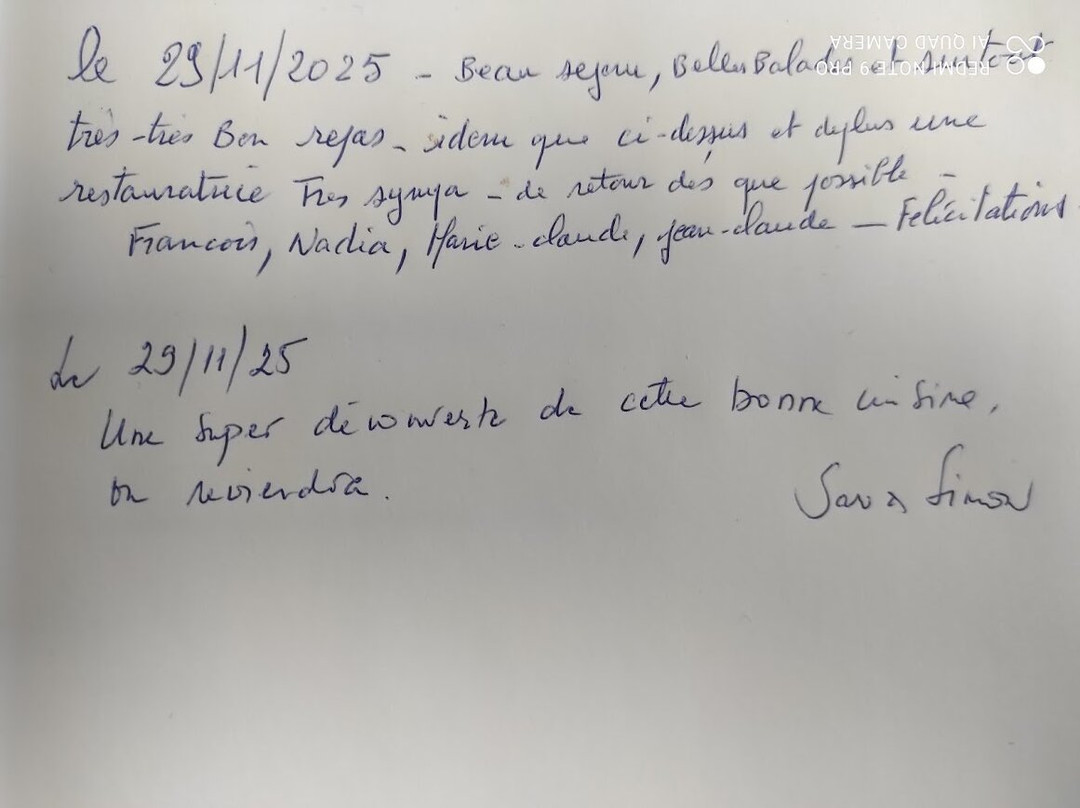 le 29/11/2025 - Beau sejour, Belles Balades et surtout
très-très Bon repas - idem que ci-dessus et deplus une
restauratrice Tres sympa - de retour dès que possible -
Francois, Nadia, Marie-claude, jean-claude - Felicitations
Le 29/11/25
Une super découverte de cette bonne cuisine,
on reviendra.
Simon
REDMI NOTE 9 PRO
AI QUAD CAMERA